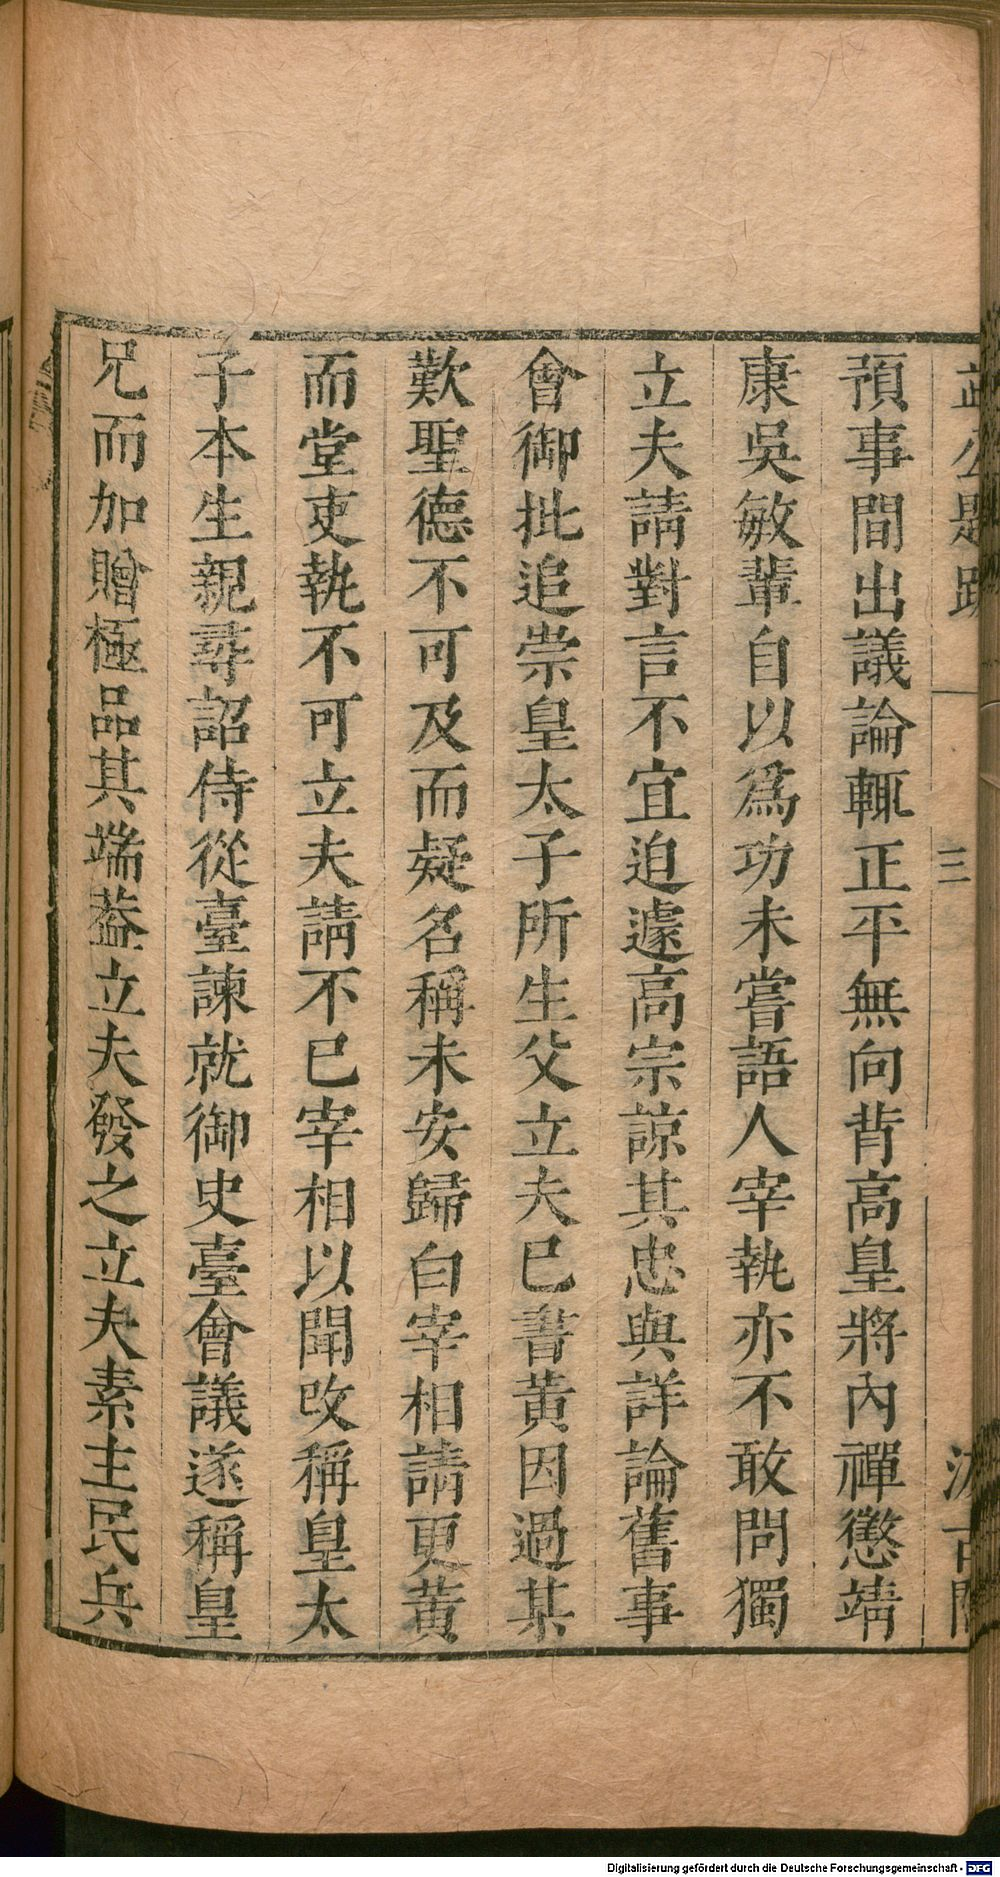 益公題跋
三
汲古閣
預事間出議論輒正平無向背高皇將內禪懲靖
康吳敏輩自以爲功未嘗語人宰執亦不敢問獨
立夫請對言不宜迫遽高宗諒其忠與詳論舊事
會御批追崇皇太子所生父立夫已書黃因過某
歎聖德不可及而疑名稱未安歸白宰相請更黃
而堂吏執不可立夫請不已宰相以聞改稱皇太
子本生親尋詔侍從臺諫就御史臺會議遂稱皇
兄而加贈極品其端葢立夫發之立夫素主民兵
Digitalisierung gefördert durch die Deutsche Forschungsgemeinschaft - DFG